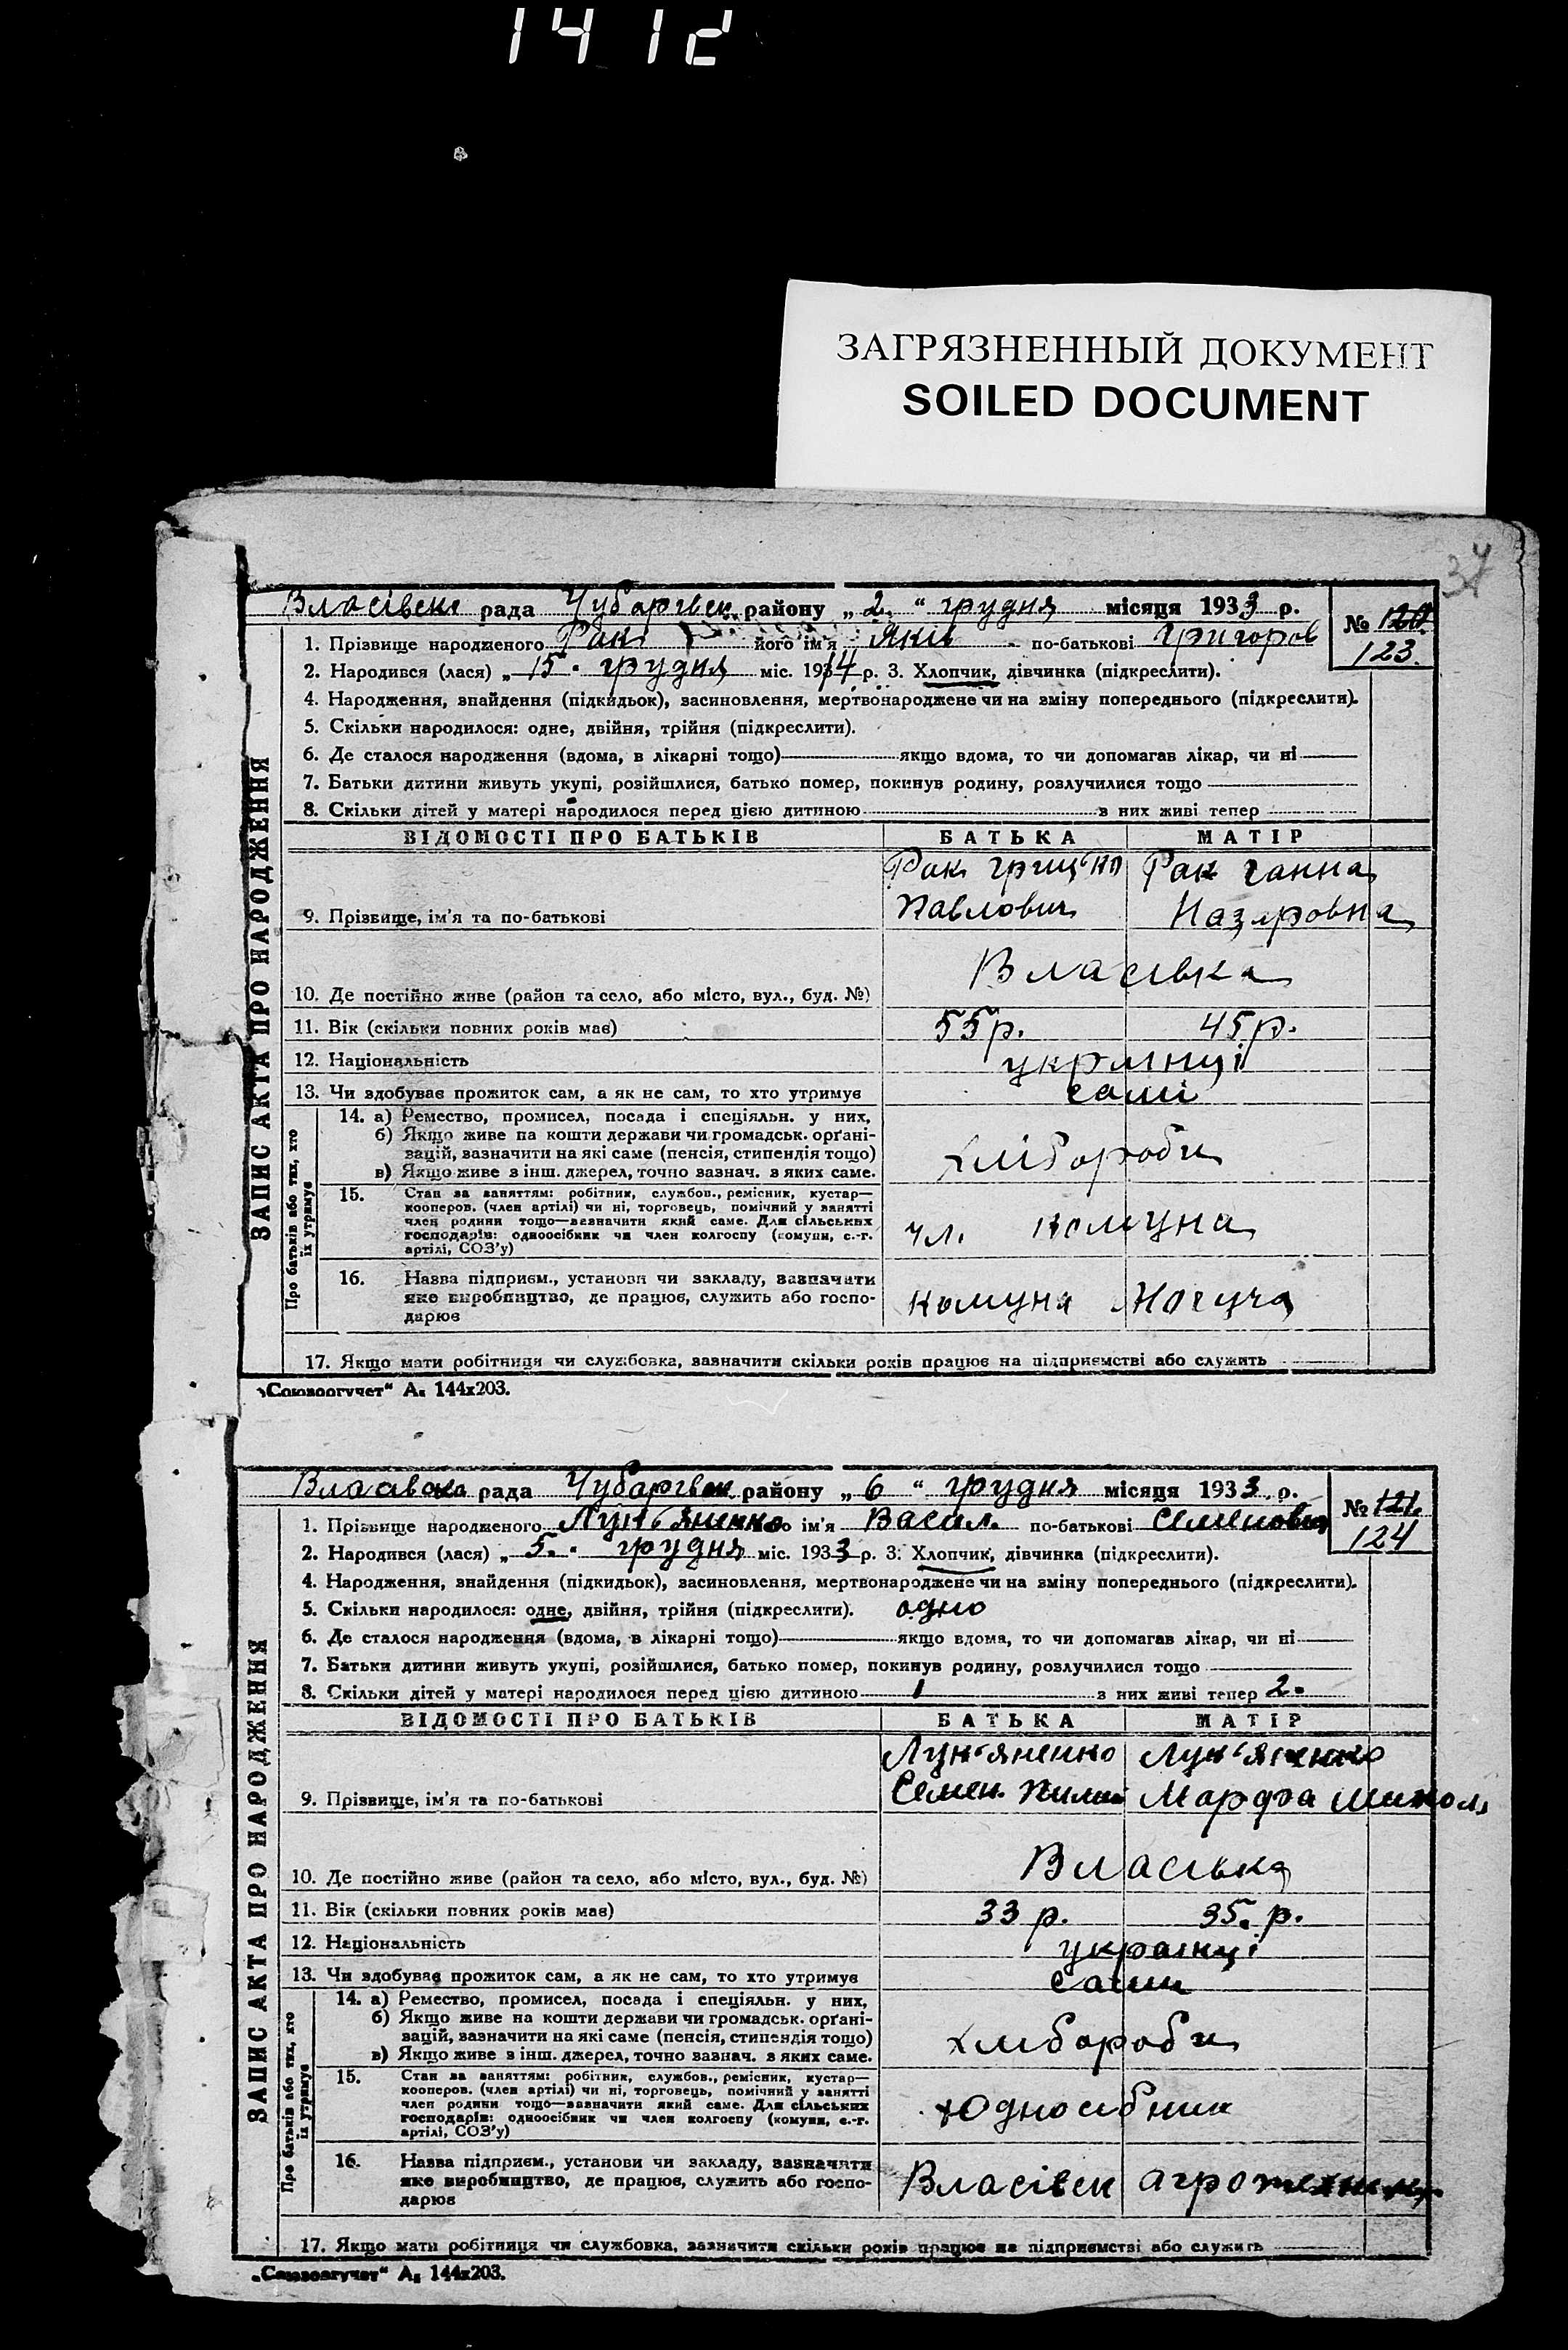 1412
ЗАГРЯЗНЕННЫЙ ДОКУМЕНТ
SOILED DOCUMENT
37
ЗАПИС АКТА ПРО НАРОДЖЕННЯ
Власівськ рада Чубарівськ. району „2." грудня місяця 1933 р.
№ 120
123.
1. Прізвище народженого Рак його ім'я Яків по-батькові Григоров
2. Народився (лася) „15. грудня міс. 1914 р. 3. Хлопчик, дівчинка (підкреслити).
4. Народження, знайдення (підкидьок), засиновлення, мертвонароджене чи на зміну попереднього (підкреслити).
5. Скільки народилося: одне, двійня, трійня (підкреслити).
6. Де сталося народження (вдома, в лікарні тощо) якщо вдома, то чи допомагав лікар, чи ні
7. Батьки дитини живуть укупі, розійшлися, батько помер, покинув родину, розлучилися тощо
8. Скільки дітей у матері народилося перед цією дитиною з них живі тепер
ВІДОМОСТІ ПРО БАТЬКІВ БАТЬКА МАТІР
Рак Грицько Рак Ганна
9. Прізвище, ім'я та по-батькові Павлович Назаровна
10. Де постійно живе (район та село, або місто, вул., буд. №) Власівка
11. Вік (скільки повних років має) 55 р. 45 р.
12. Національність українці
13. Чи здобуває прожиток сам, а як не сам, то хто утримує самі
Про батьків або тих, хто їх утримує
14. а) Ремество, промисел, посада і спеціяльн. у них,
б) Якщо живе на кошти держави чи громадськ. орґані-
зацій, зазначити на які саме (пенсія, стипендія тощо) хлібороби
в) Якщо живе з інш. джерел, точно зазнач. з яких саме.
15. Стан за заняттям: робітник, службов., ремісник, кустар—
кооперов. (член артілі) чи ні, торговець, помічний у занятті
член родини тощо—зазначити який саме. Для сільських чл. комуна
господарів: одноосібник чи член колгоспу (комуни, с.-г.
артілі, СОЗ'у)
16. Назва підприєм., установи чи закладу, зазначити
яке виробництво, де працює, служить або госпо- комуна Могуча
дарює
17. Якщо мати робітниця чи службовка, зазначити скільки років працює на підприємстві або служить
„Союзоргучет" А₅ 144x203.
ЗАПИС АКТА ПРО НАРОДЖЕННЯ
Власівська рада Чубарівськ. району „6" грудня місяця 1933 р.
№ 121.
124
1. Прізвище народженого Лук'яненко його ім'я Васил. по-батькові Семенович
2. Народився (лася) „5. грудня міс. 1933 р. 3. Хлопчик, дівчинка (підкреслити).
4. Народження, знайдення (підкидьок), засиновлення, мертвонароджене чи на зміну попереднього (підкреслити).
5. Скільки народилося: одне, двійня, трійня (підкреслити). одно
6. Де сталося народження (вдома, в лікарні тощо) якщо вдома, то чи допомагав лікар, чи ні
7. Батьки дитини живуть укупі, розійшлися, батько помер, покинув родину, розлучилися тощо
8. Скільки дітей у матері народилося перед цією дитиною 1 з них живі тепер 2.
ВІДОМОСТІ ПРО БАТЬКІВ БАТЬКА МАТІР
Лук'яненко Лук'яненко
9. Прізвище, ім'я та по-батькові Семен. Пилип Марфа Микол
10. Де постійно живе (район та село, або місто, вул., буд. №) Власівка
11. Вік (скільки повних років має) 33 р. 35. р.
12. Національність українці
13. Чи здобуває прожиток сам, а як не сам, то хто утримує сами
Про батьків або тих, хто їх утримує
14. а) Ремество, промисел, посада і спеціяльн. у них,
б) Якщо живе на кошти держави чи громадськ. орґані-
зацій, зазначити на які саме (пенсія, стипендія тощо) хлібороби
в) Якщо живе з інш. джерел, точно зазнач. з яких саме.
15. Стан за заняттям: робітник, службов., ремісник, кустар—
кооперов. (член артілі) чи ні, торговець, помічний у занятті
член родини тощо—зазначити який саме. Для сільських односібник
господарів: одноосібник чи член колгоспу (комуни, с.-г.
артілі, СОЗ'у)
16. Назва підприєм., установи чи закладу, зазначити
яке виробництво, де працює, служить або госпо- Власівськ
дарює
17. Якщо мати робітниця чи службовка, зазначити скільки років працює на підприємстві або служить
„Союзоргучет" А₅ 144x203.